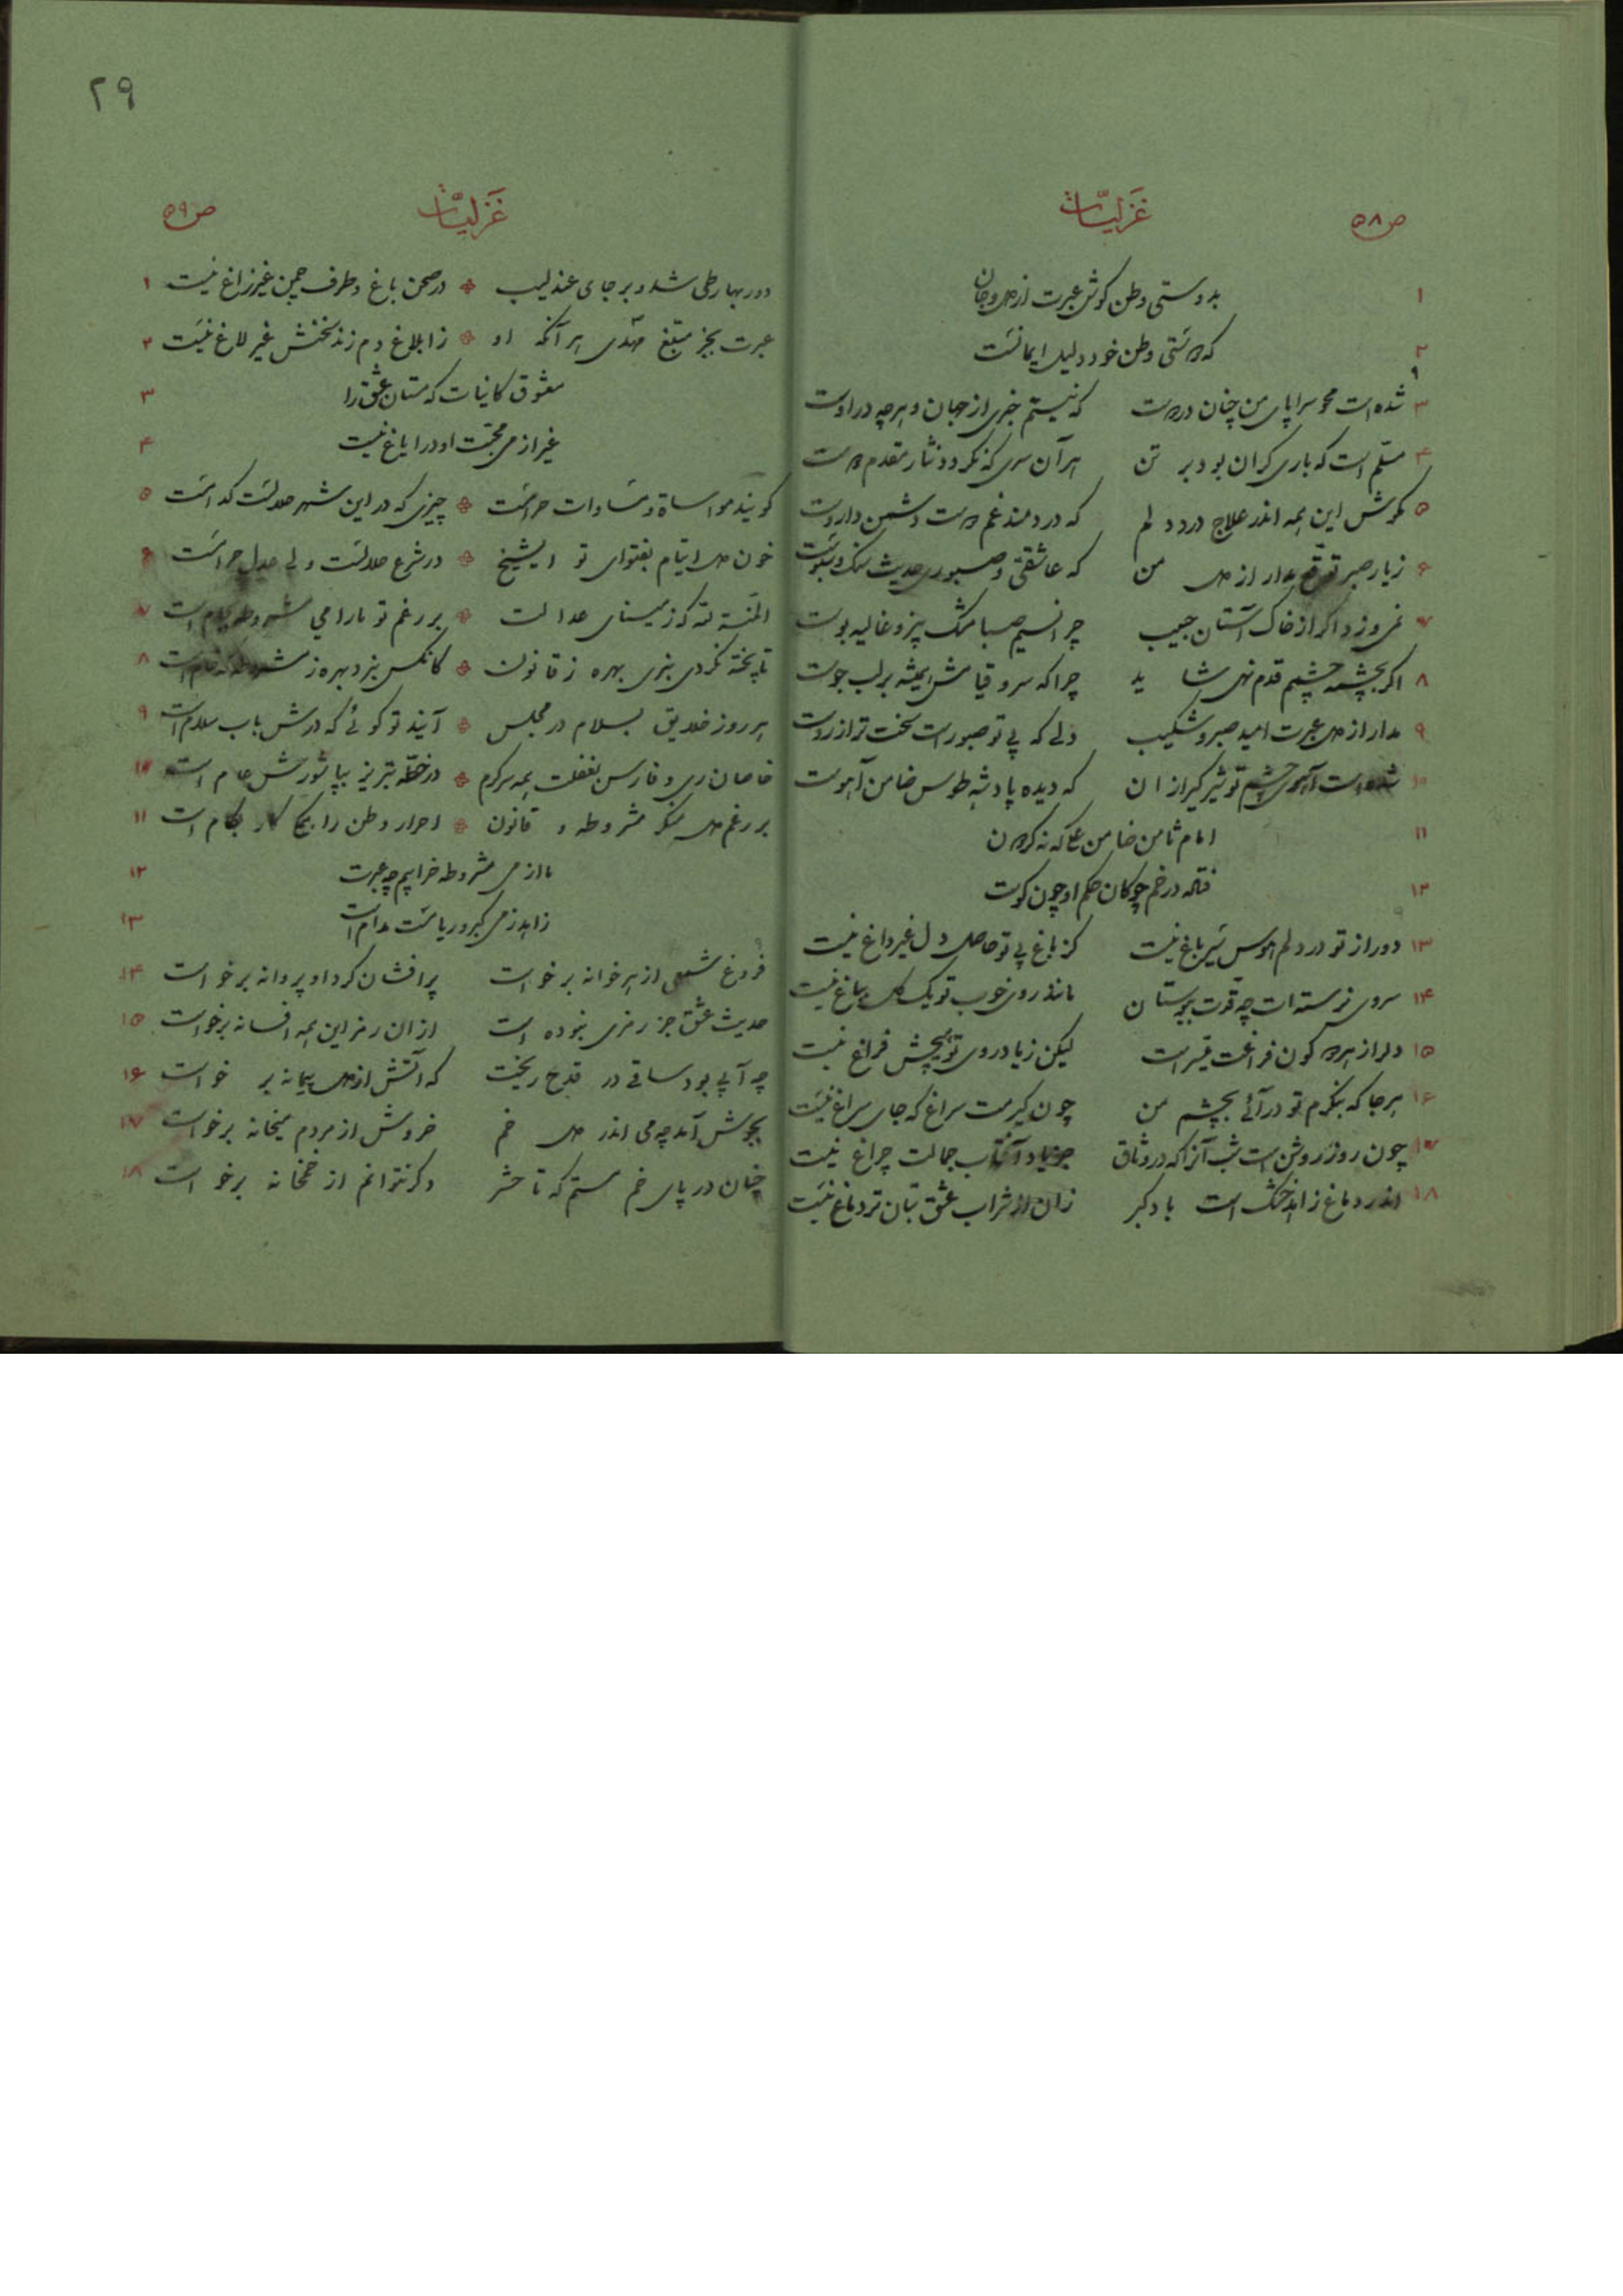 ۲۹
ص۵۸ غزلیّات
۱ بدوستی وطن کوش عبرت از دل و جان
۲ که دوستی وطن خود دلیل ایمانست
۳ شده است محو سراپای من چنان در دوست که نیستم خبری از جهان و هرچه در اوست
۴ مسلّم است که باری گران بود بر تن هر آن سری که نگردد نثار مقدم دوست
۵ مکوش این همه اندر علاج درد دلم که دردمند غم دوست دشمن داروست
۶ زیار صبر توقّع مدار از دل من که عاشقی و صبوری حدیث سنگ و سبوست
۷ نمی‌وزد اگر از خاک آستان حبیب چرا نسیم صبا مشک بیز و غالیه بوست
۸ اگر بچشمه چشمم قدم نهی شاید چرا که سرو قیامش همیشه بر لب جوست
۹ مدار از دل عبرت امید صبر و شکیب دلی که بی تو صبور است سخت‌تر از روست
۱۰ شده است آهوی چشم تو شیر گیر از آن که دیده پادشه طوس ضامن آهوست
۱۱ امام ثامن ضامن که نه
۱۲ فتاده در خم چوگان حکم او چون گوست
۱۳ دور از تو در دلم هوس سَیر باغ نیست کز باغ بی تو حاصل دل غیر داغ نیست
۱۴ سروی نرسته است چو قدّت ببوستان مانند روی خوب تو یک گل بباغ نیست
۱۵ دل را ز هر دو کون فراغت میسّر است لیکن زیاد روی تو هیچش فراغ نیست
۱۶ هرجا که بنگرم تو درآئی بچشم من چون گیرمت سراغ که جای سراغ نیست
۱۷ چون روز روشن است شب آنرا که در وثاق جز یاد آفتاب جمالت چراغ نیست
۱۸ اندر دماغ زاهد خشک است باد کبر زان از شراب عشق بتان تر دماغ نیست
ص۵۹ غزلیّات
۱ دور بهار طی شد و بر جای عندلیب در صحن باغ و طرف چمن غیر زاغ نیست
۲ عبرت بجز مبلّغ هر آنکه او ز ابلاغ دم زند سخنش غیر لاغ نیست
۳ معشوق کاینات که مستان عشق را
۴ غیر از می محبّت او در ایاغ نیست
۵ گویند مواساة و مساوات حرامست چیزی که در این شهر حلالست کدامست
۶ خون دل ایتام بفتوای تو ای شیخ در شرع حلالست ولی عدل حرامست
۷ المنّة لله که ز مینای عدالت بر رغم تو ما را می مشروطه بجام است
۸ تا پخته نگردی نبری بهره ز قانون کانکس نبرد بهره ز مشروطه که خام است
۹ هر روز خلایق بسلام در مجلس آیند تو گوئی که درش باب سلام است
۱۰ خاصان ری و فارس بغفلت همه سرگرم در خطّه تبریز بپا شورش عام است
۱۱ بر رغم دل منکر مشروطه و قانون احرار وطن را همگی کار بکام است
۱۲ ما از می مشروطه خرابیم چو عبرت
۱۳ زاهد ز می کبر و ریا مست مدام است
۱۴ فروغ شمعی از هر خوانه برخواست پرافشان گرد او پروانه برخواست
۱۵ حدیث عشق جز رمزی نبوده است از آن رمز این همه افسانه برخواست
۱۶ چه آبی بود ساقی در قدح ریخت که آتش از دل پیمانه برخواست
۱۷ بجوش آمد چو می اندر دل خم خروش از مردم میخانه برخواست
۱۸ چنان در پای خم مستم که تا حشر دگر نتوانم از خمخانه برخواست